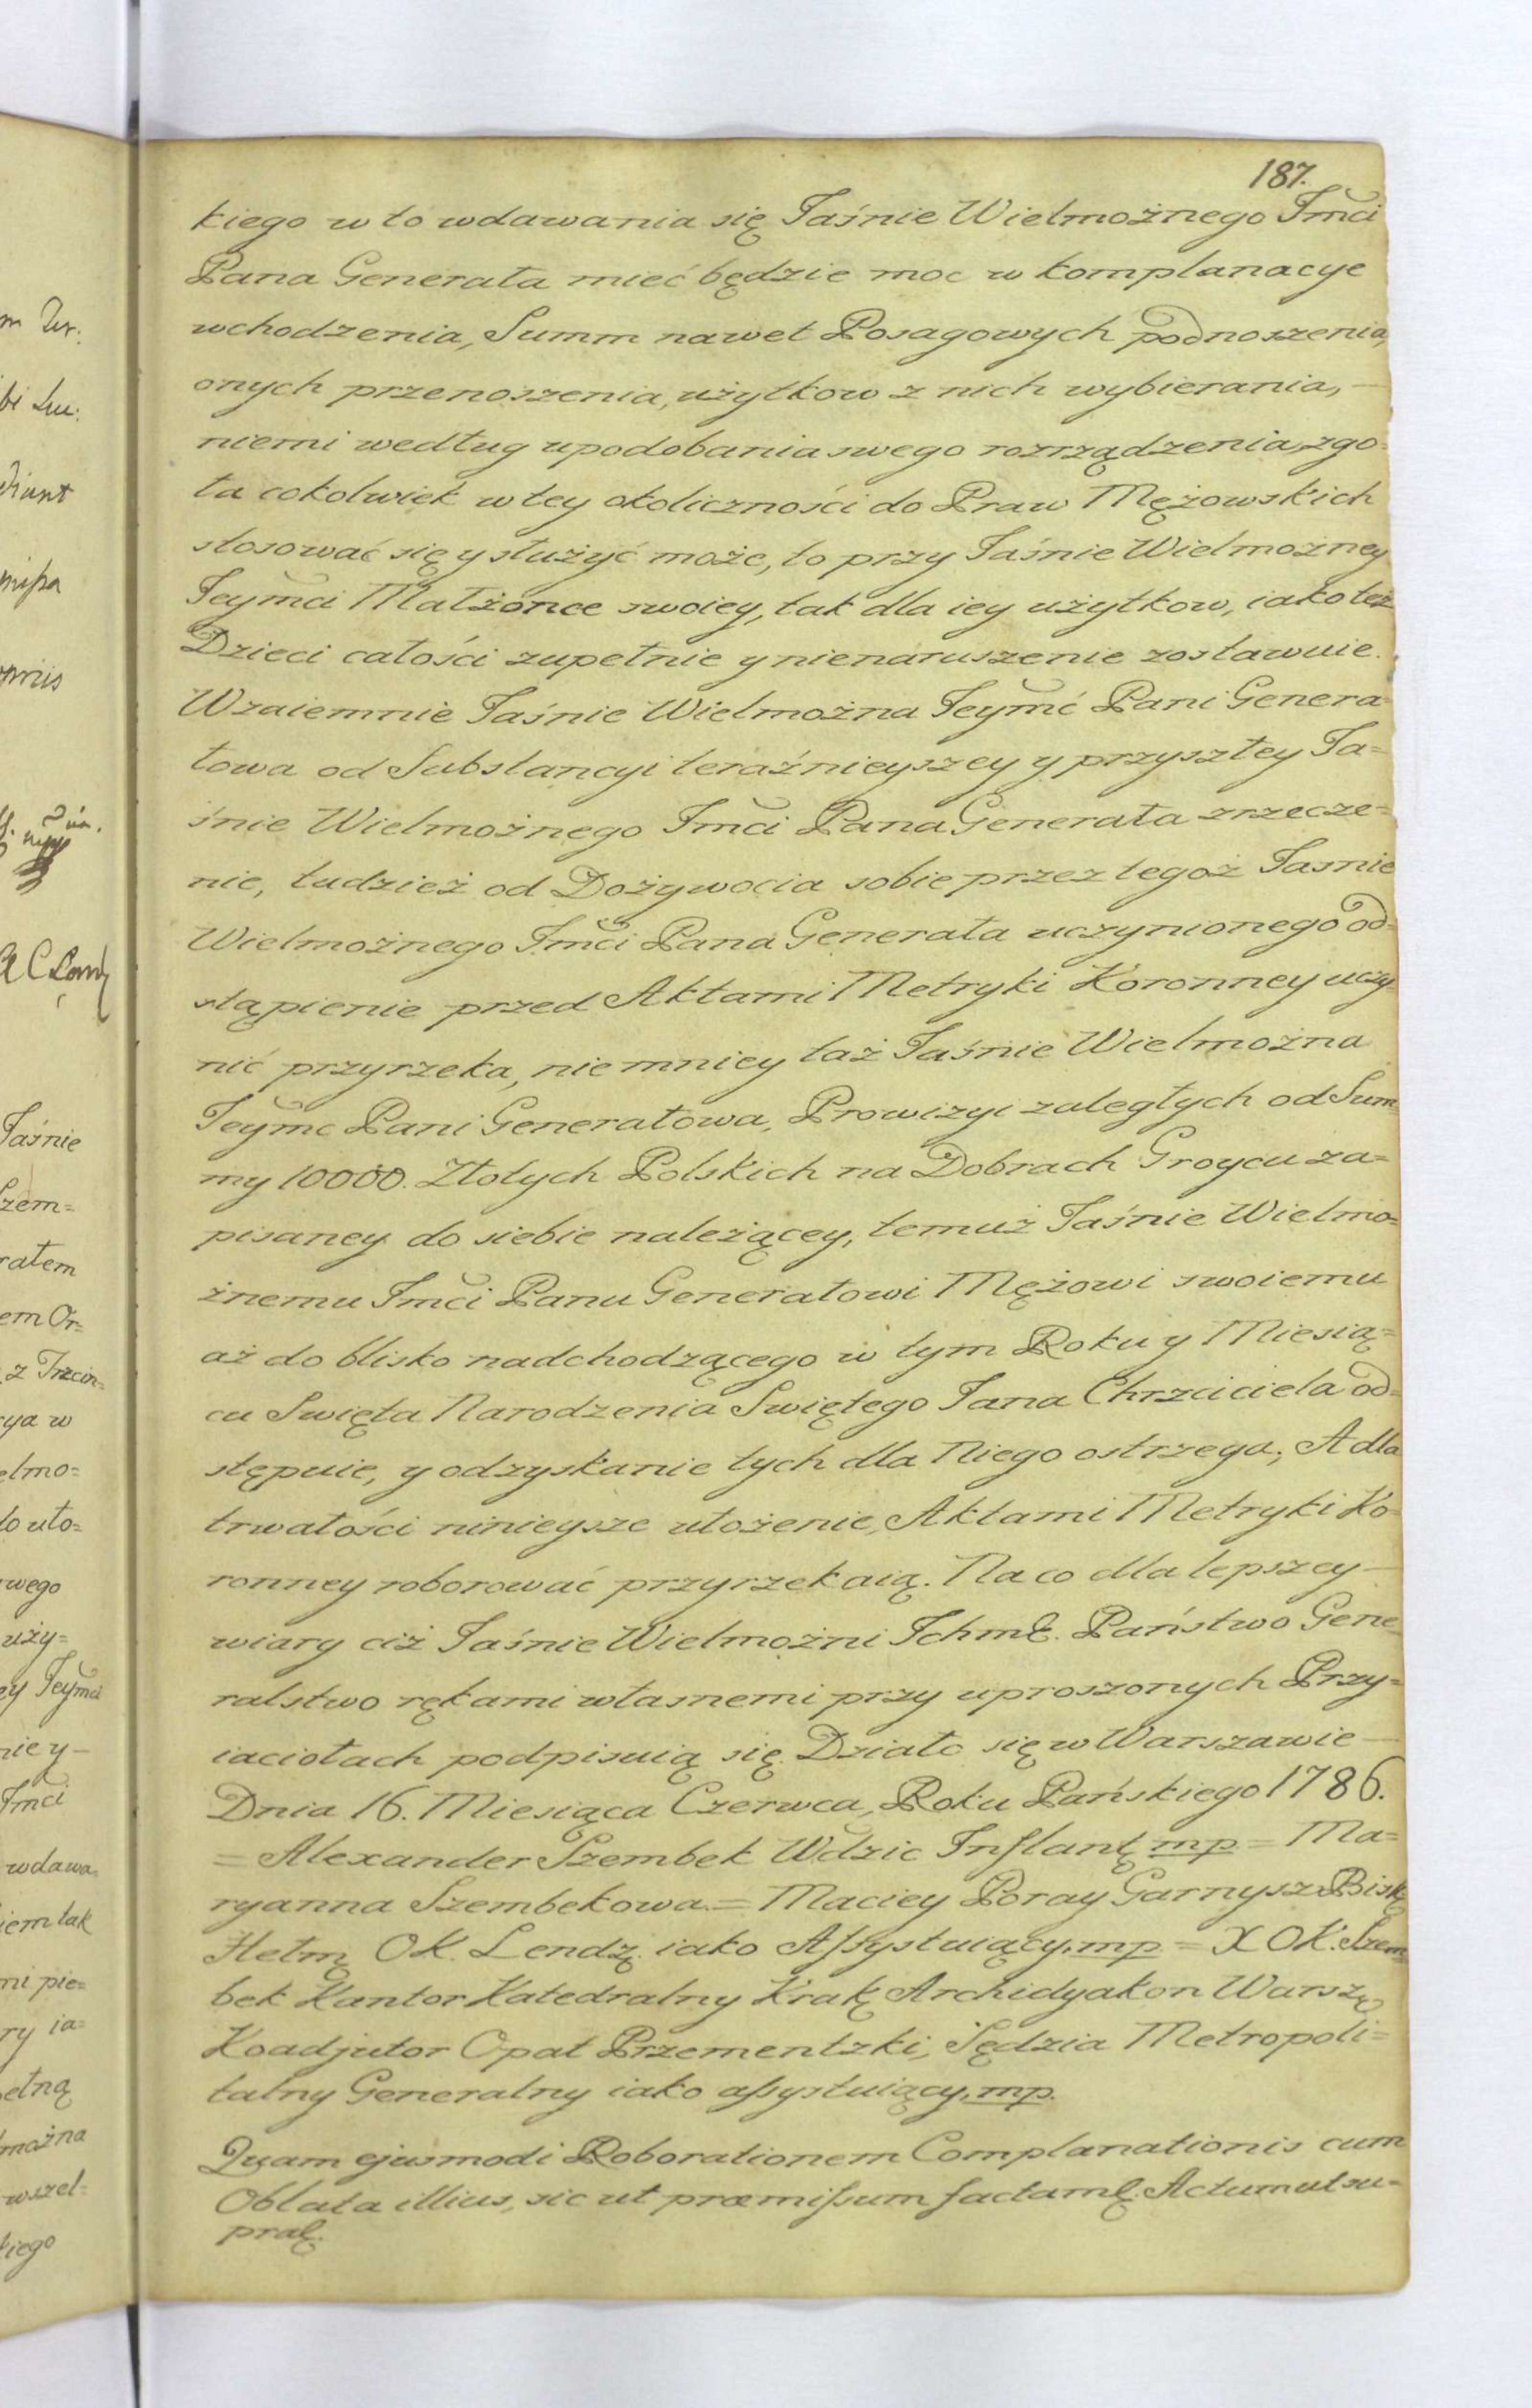 187.
kiego w to wdawania się Jaśnie Wielmożnego Jmci
Pana Generała mieć będzie moc w komplanacye
wchodzenia, Summ nawet Posagowych podnoszenia,
onych przenoszenia, użytkow z nich wybierania, —
niemi według upodobania swego rozrządzenia, zgo-
ła cokolwiek w tey okoliczności do Praw Mężowskich
stosować się y służyć może, to przy Jaśnie Wielmożney
Jeymci Małżonce swoiey, tak dla iey użytkow, iako też
Dzieci całości zupełnie y nienaruszenie zostawuie.
Wzaiemnie Jaśnie Wielmożna Jeymć Pani Genera-
łowa od Substancyi teraźnieyszey y przyszłey Ja=
śnie Wielmożnego Jmci Pana Generała zrzecze=
nie, tudzież od Dożywocia sobie przez tegoż Jasnie
Wielmożnego Jmci Pana Generała uczynionego od=
stąpienie przed Aktami Metryki Koronney uczy-
nić przyrzeka, niemniey taż Jaśnie Wielmożna
Jeymc Pani Generałowa, Prowizyi zaległych od Sum
my 10000. Złotych Polskich na Dobrach Groycu za=
pisaney do siebie należącey, temuż Jaśnie Wielmo=
żnemu Jmci Panu Generałowi Mężowi swoiemu
aż do blisko nadchodzącego w tym Roku y Miesią=
cu Swięta Narodzenia Swiętego Jana Chrzciciela od=
stępuie, y odzyskanie tych dla Niego ostrzega; A dla
trwałości ninieysze ułożenie, Aktami Metryki Ko-
ronney roborować przyrzekaią. Na co dla lepszey —
wiary ciż Jaśnie Wielmożni Ichmć. Państwo Gene-
ralstwo rękami własnemi przy uproszonych Przy=
iaciołach podpisuią się. Działo się w Warszawie —
Dnia 16. Miesiąca Czerwca, Roku Pańskiego 1786.
= Alexander Szembek Wdzic Inflant mp = Ma=
ryanna Szembekowa = Maciey Poray Garnysz Bisk
Hełm OK. Lendz. iako Assystuiący. mp = X OK. Szem
bek Kantor Katedralny Krak Archidyakon Warsz
Koadjutor Opat Przementzki, Sędzia Metropoli=
talny Generalny iako assystuiący. mp.
Quam ejusmodi Roborationem Complanationis cum
Oblata illius, sic ut præmissum factam. Actum ut su=
pra.